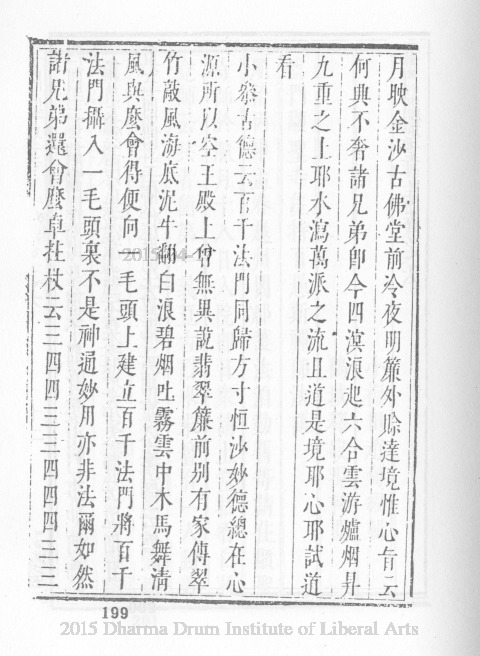 月映金沙古佛堂前冷夜明簾外賒達境惟心旨云
何典不奢諸兄弟即今四溟浪起六合雲游爐烟昇
九重之上耶水瀉萬派之流且道是境耶心耶試道
看
小參古德云百千法門同歸方寸恒沙妙德總在心
源所以空王殿上曾無異說翡翠簾前別有家傳翠
竹敲風海底泥牛翻白浪碧烟吐霧雲中木馬舞清
風與麼會得便向一毛頭上建立百千法門將百千
法門攝入一毛頭裏不是神通妙用亦非法爾如然
諸兄弟還會麼卓拄杖云三四四三三四四四三三
199
2015 Dharma Drum Institute of Liberal Arts